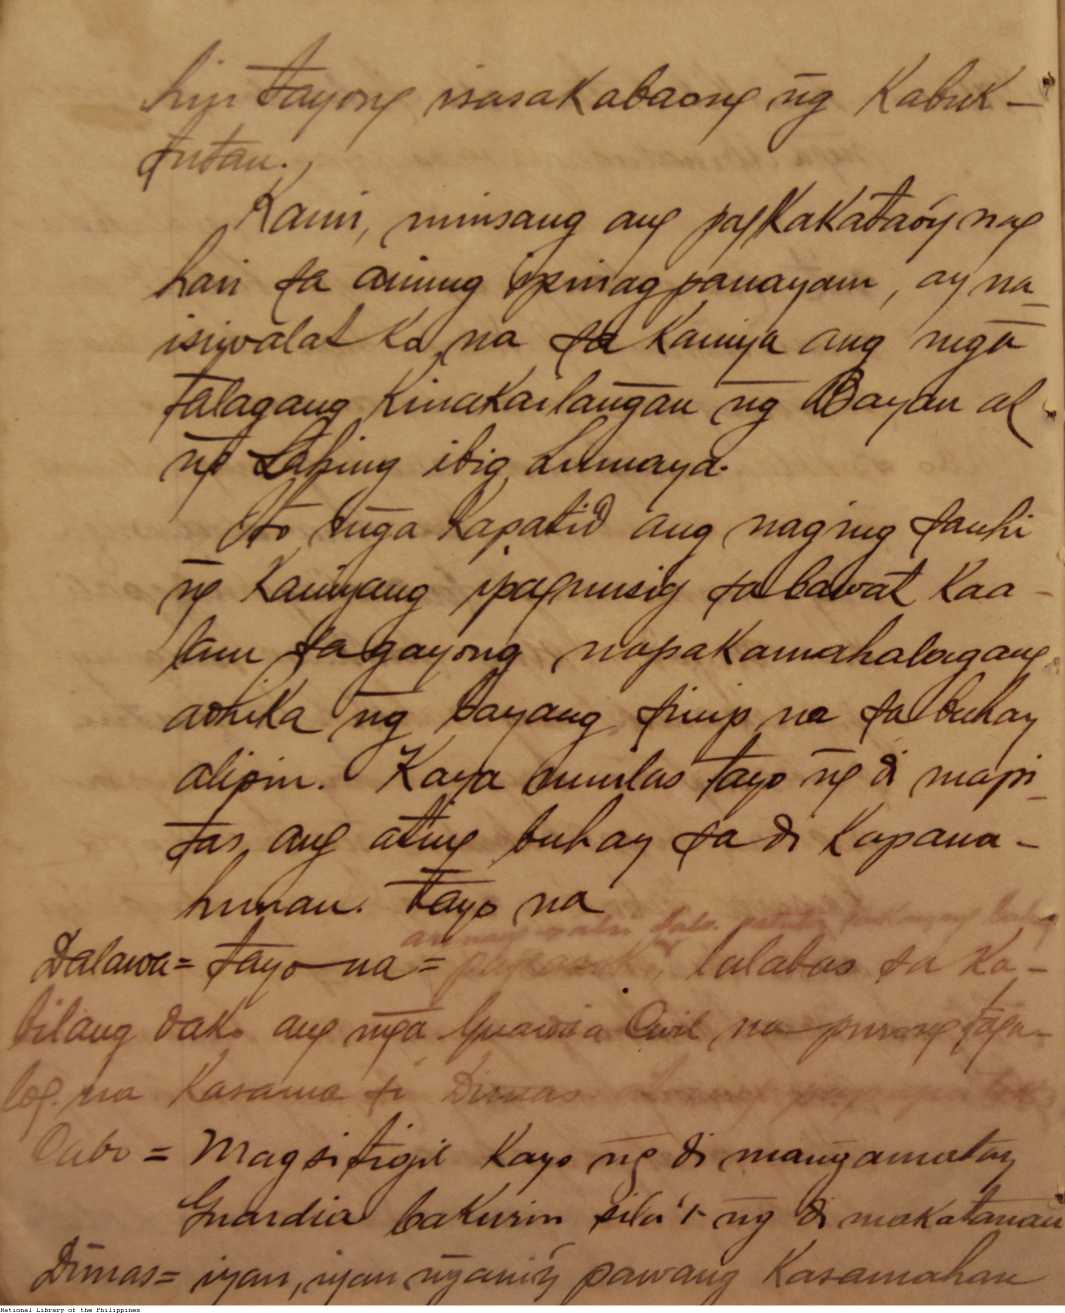 hin tayong isasakabaong ng Kabuk-
tutan.
Kami, minsang ang pagkakataóy nag
hari sa aming ipinagpanayam, ay na-
isiwalat Ko na sa Kaniya ang mga
talagang Kinakailangan ng Bayan at
ng Lahing ibig lumaya.
Ito mga Kapatid ang naging sanhi
ng Kaniyang ipagmisig sa bawat Kaa-
lam sa gayong napakamahalagang
adhika ng bayang siniip na sa buhay
alipin. Kaya umilas tayo ng di mapi-
tas ang ating buhay sa di Kapana-
hunan. Tayo na
Dalawa = Tayo na = lalabas sa Ka-
bilang dako ang mga Guardia Civil na purong taga-
log na Kasama si Dimas
Cabo = Magsitigil Kayo ng di mangamatay
Guardia bakurin sila't ng di makatanan
Dimas = iyan, iyan ngani'y pawang Kasamahan
National Library of the Philippines